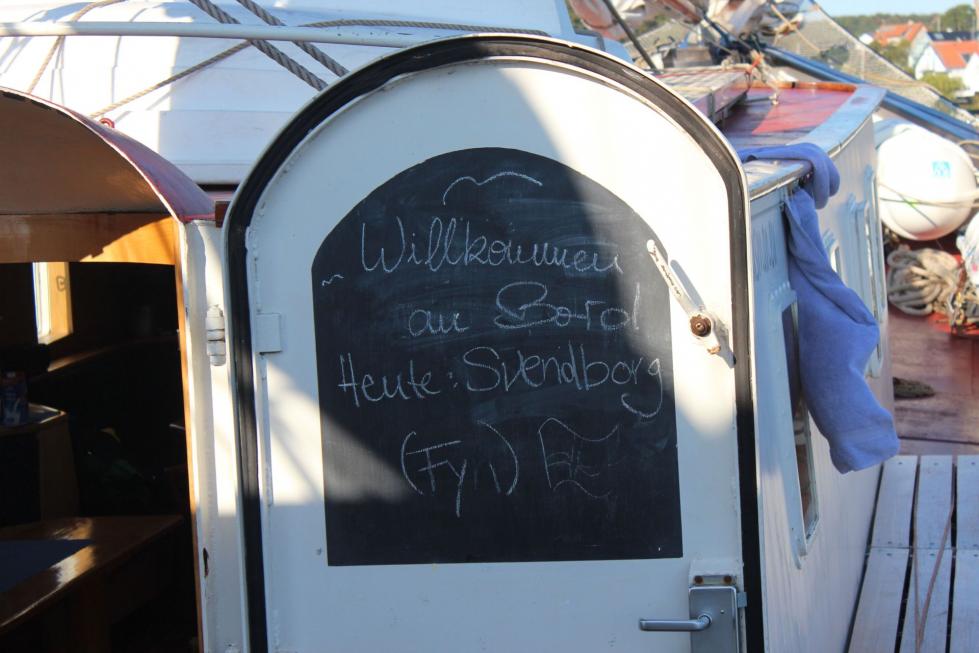 Willkommen
an Bord
Heute: Svendborg
(Fyn)